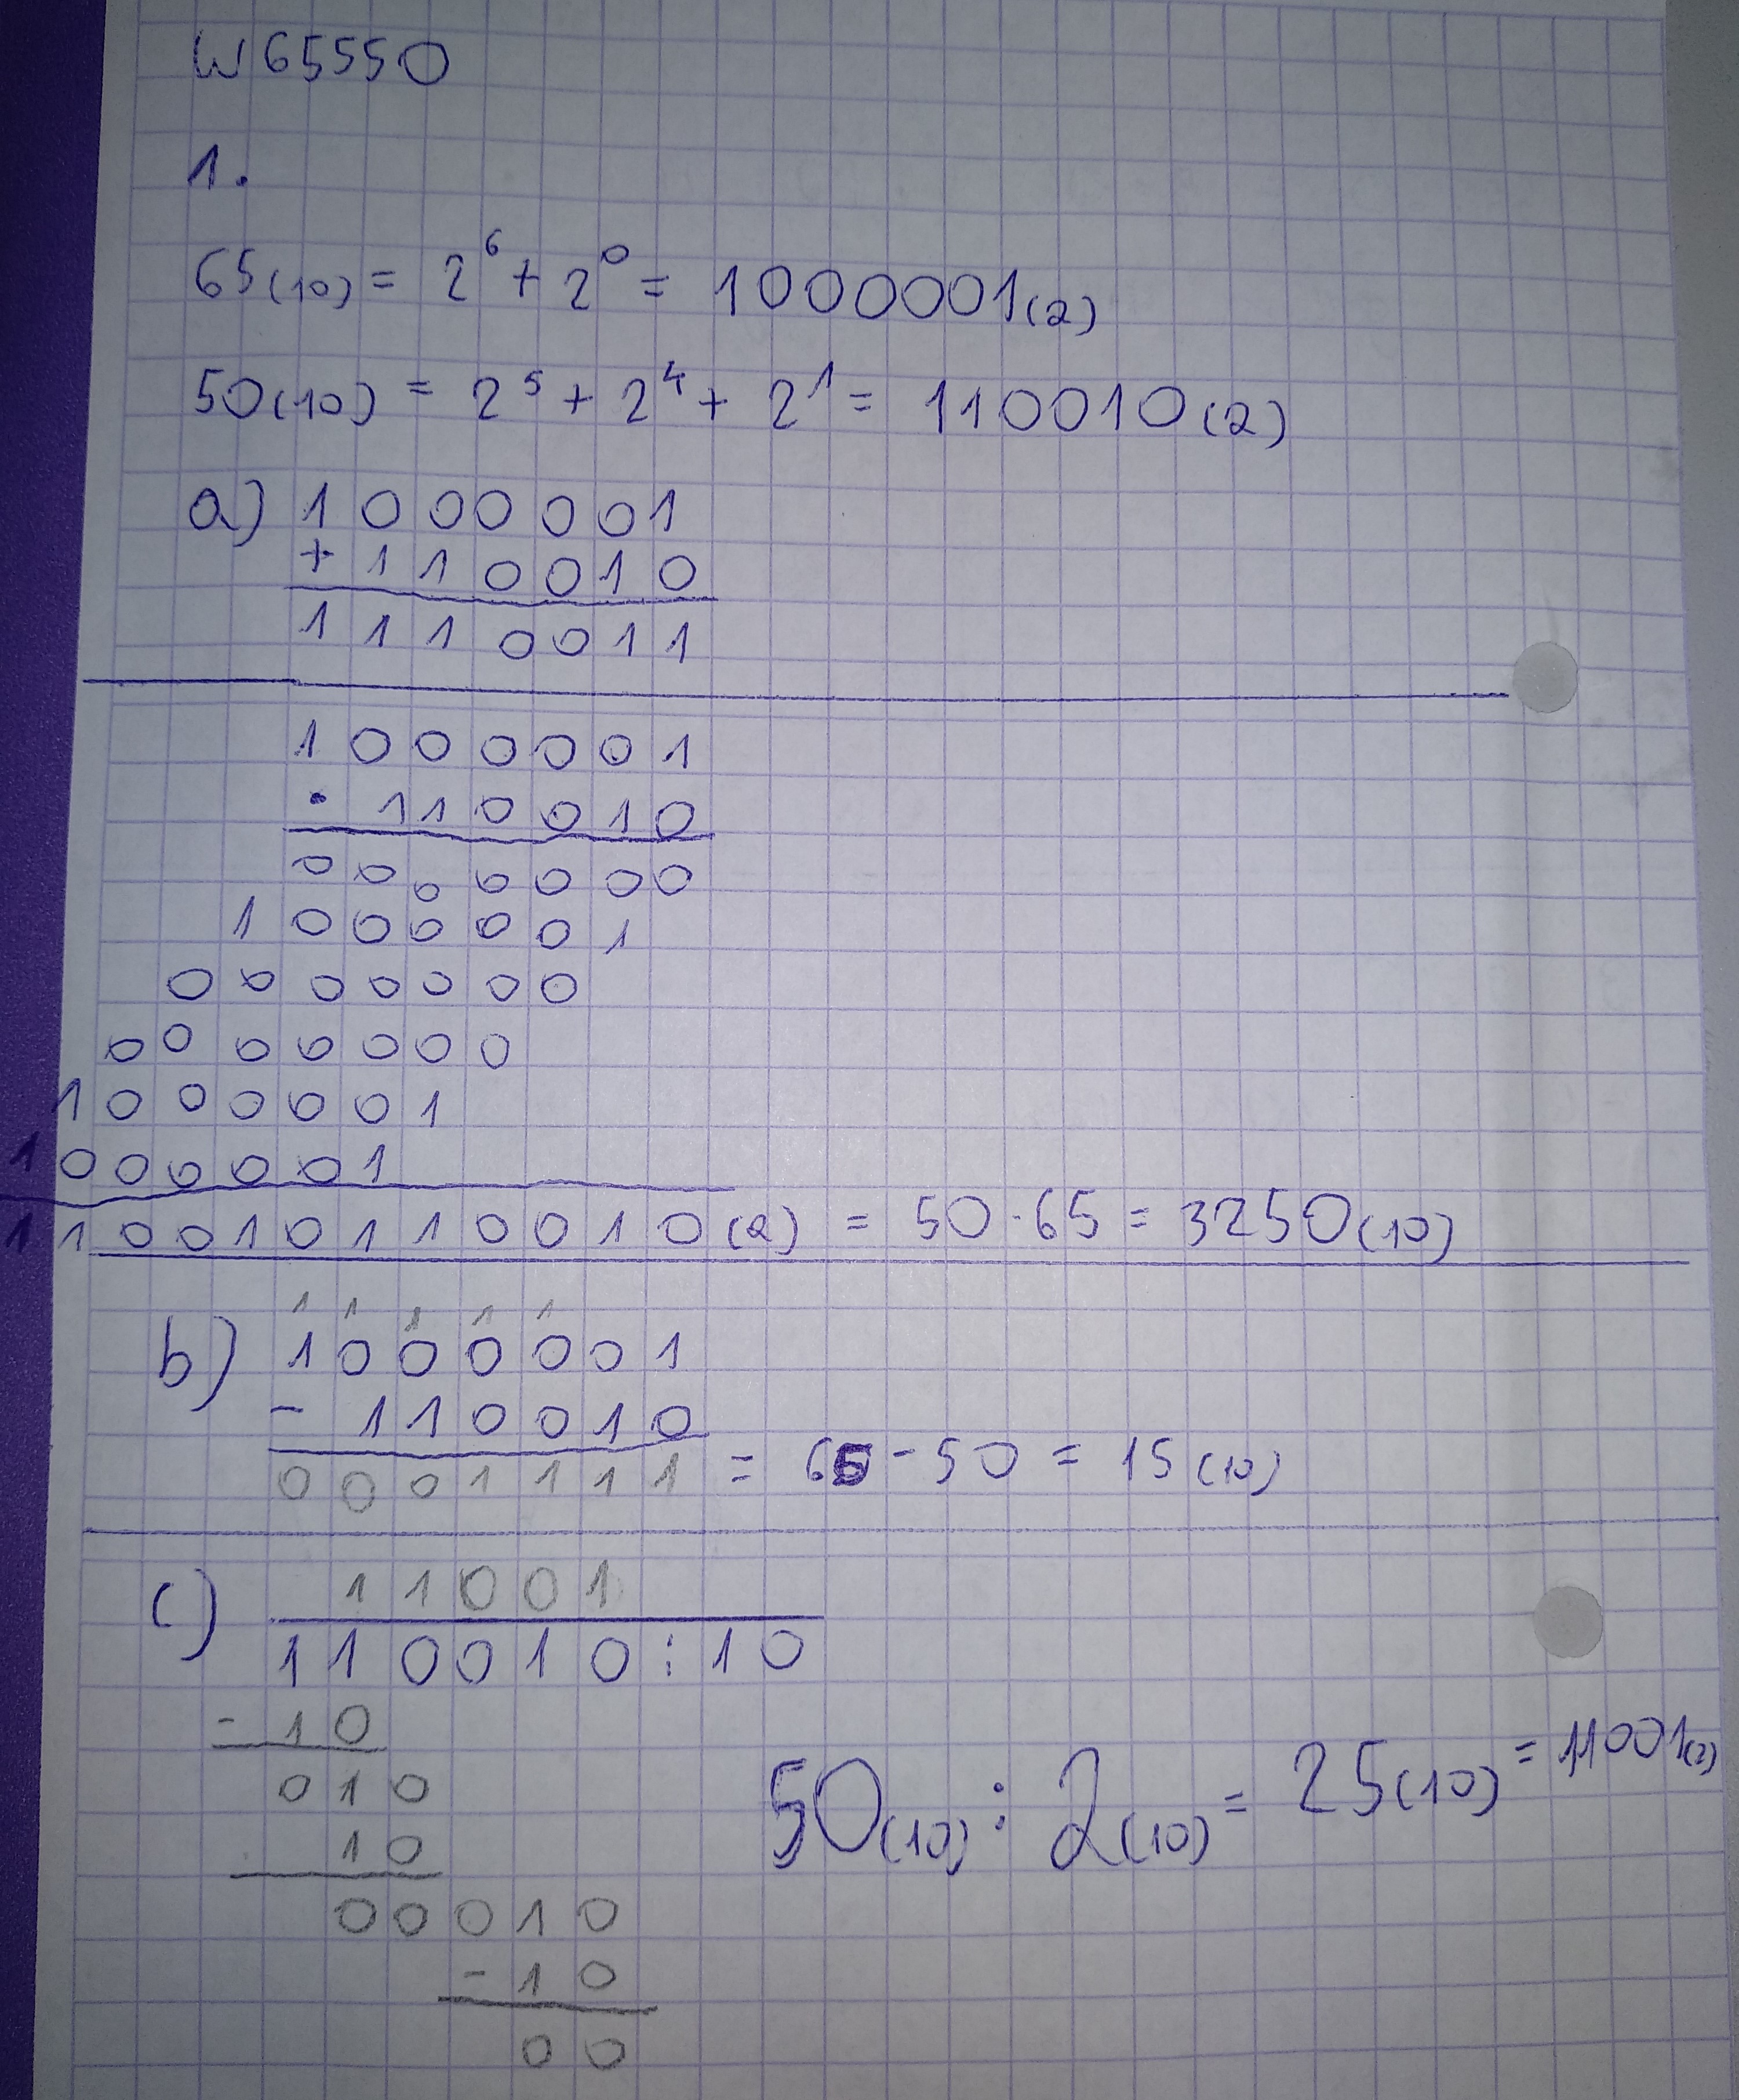 W65550
1.
65(10) = 2⁶ + 2⁰ = 1000001(2)
50(10) = 2⁵ + 2⁴ + 2¹ = 110010(2)
a) 1000001
+ 110010
1110011
1000001
· 110010
0000000
1000001
0000000
0000000
1000001
1000001
110010110010(2) = 50·65 = 3250(10)
1 1 1 1 1
b) 1000001
- 110010
0001111 = 65 - 50 = 15(10)
11001
c) 110010 : 10
- 10
010
10
00010
- 10
00
50(10) : 2(10) = 25(10) = 11001(2)